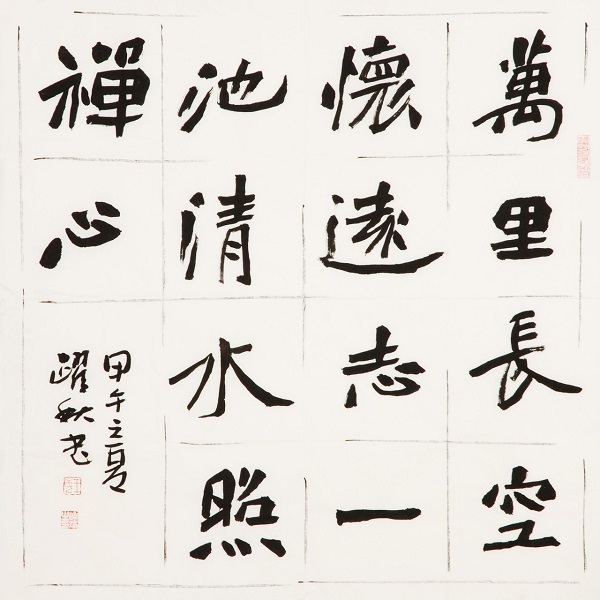 萬里長空
懷遠志一
池清水照
禪心
甲午之夏
躍秋書